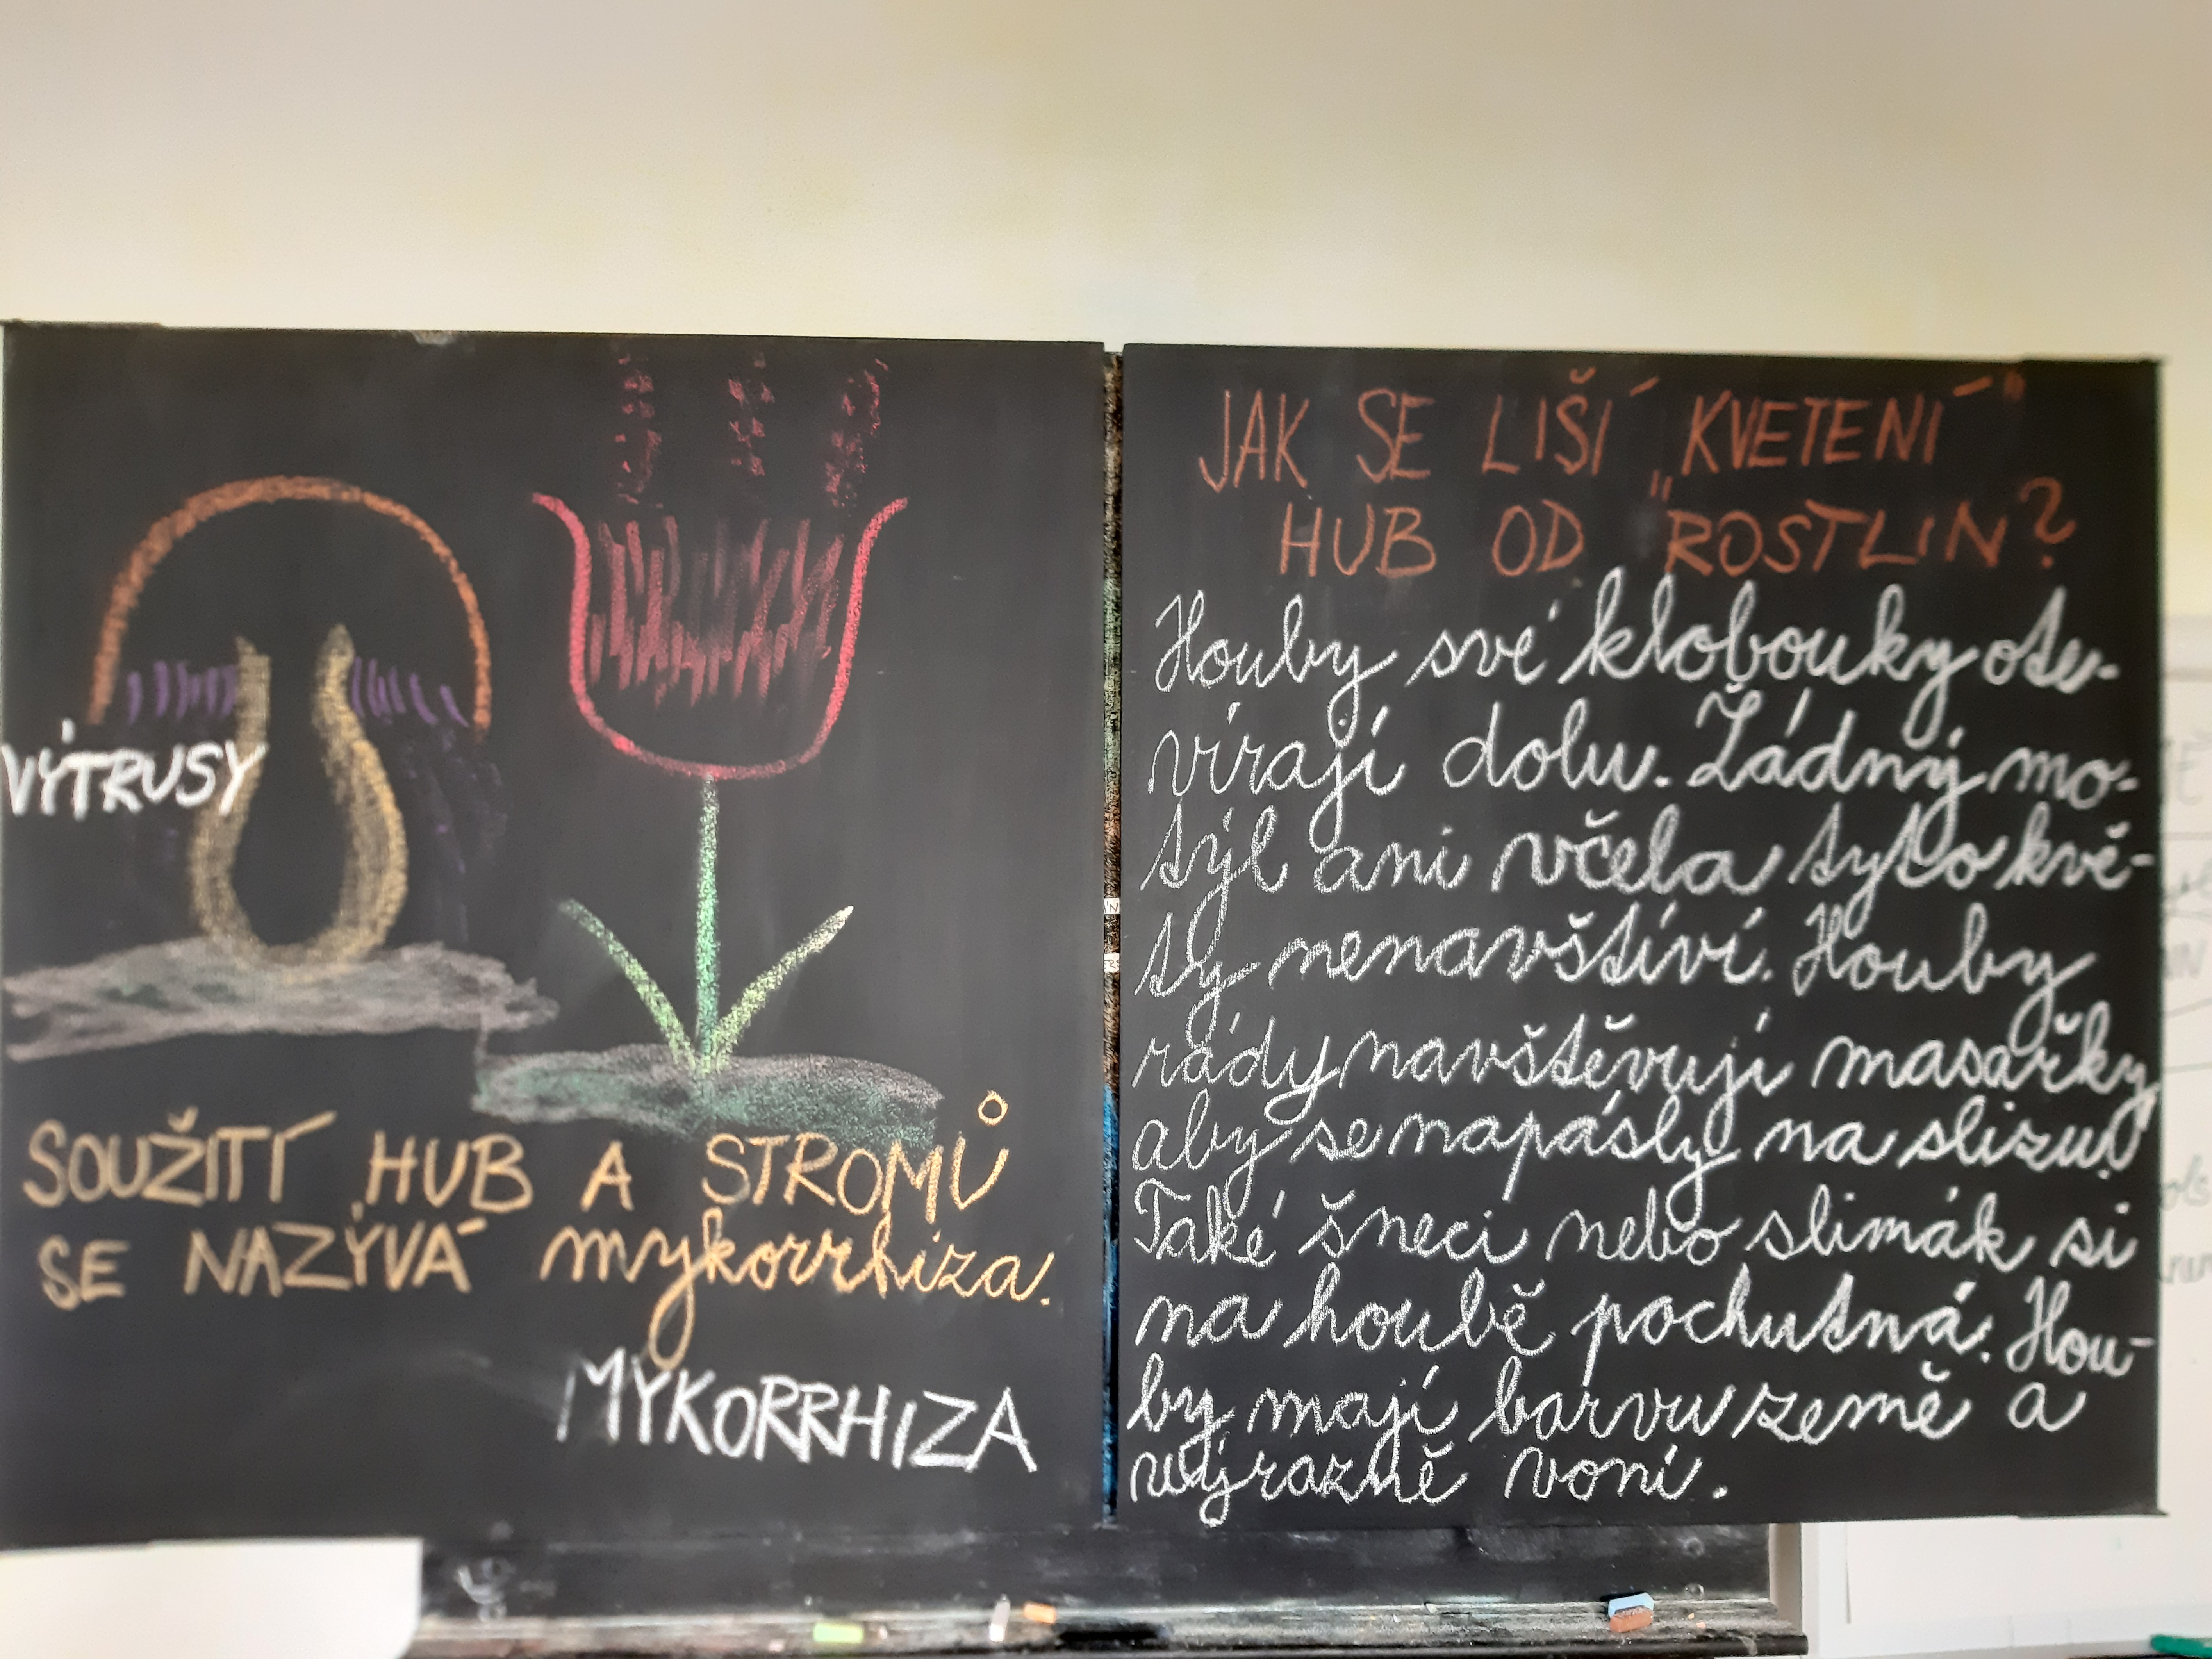 VÝTRUSY
SOUŽITÍ HUB A STROMŮ
SE NAZÝVÁ mykorrhiza.
MYKORRHIZA
JAK SE LIŠÍ „KVETENÍ"
HUB OD "ROSTLIN?
Houby své klobouky ote-
vírají dolu. Žádný mo-
týl ani včela tyto kvě-
ty nenavštíví. Houby
rády navštěvují masařky,
aby se napásly na slizu.
Také šneci nebo slimák si
na houbě pochutná. Hou-
by mají barvu země a
výrazně voní.